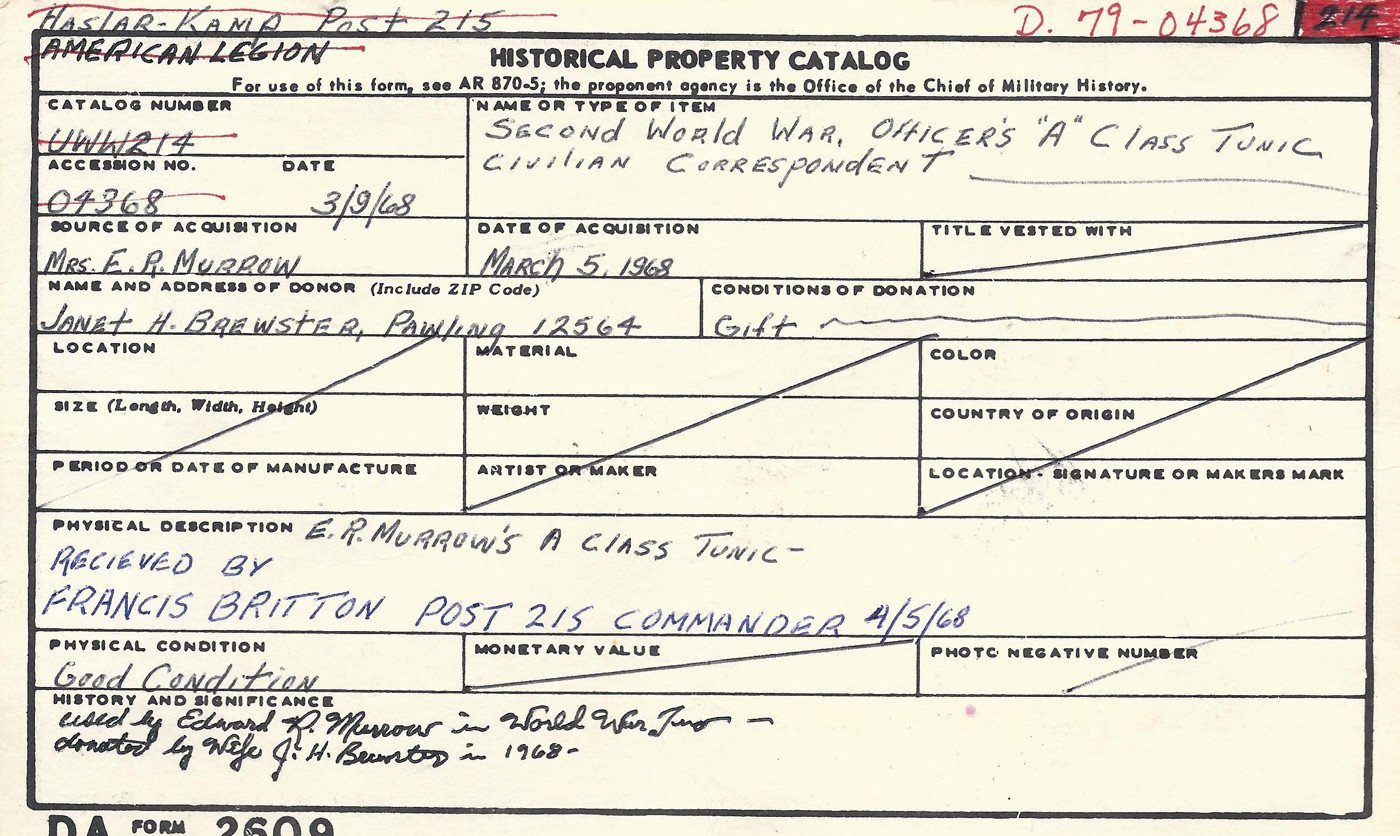 HASLAR-KAMP Post 215
D. 79-04368 214
AMERICAN LEGION
HISTORICAL PROPERTY CATALOG
For use of this form, see AR 870-5; the proponent agency is the Office of the Chief of Military History.
CATALOG NUMBER
UWW214
NAME OR TYPE OF ITEM
SECOND WORLD WAR, OFFICER'S "A" CLASS TUNIC
CIVILIAN CORRESPONDENT
ACCESSION NO. DATE
04368 3/9/68
SOURCE OF ACQUISITION
MRS. E. R. MURROW
DATE OF ACQUISITION
MARCH 5, 1968
TITLE VESTED WITH
NAME AND ADDRESS OF DONOR (Include ZIP Code)
JANET H. BREWSTER, PAWLING 12564
CONDITIONS OF DONATION
Gift
LOCATION
MATERIAL
COLOR
SIZE (Length, Width, Height)
WEIGHT
COUNTRY OF ORIGIN
PERIOD OR DATE OF MANUFACTURE
ARTIST OR MAKER
LOCATION - SIGNATURE OR MAKERS MARK
PHYSICAL DESCRIPTION E.R. MURROW'S A CLASS TUNIC-
RECIEVED BY
FRANCIS BRITTON POST 215 COMMANDER 4/5/68
PHYSICAL CONDITION
Good Condition
MONETARY VALUE
PHOTO NEGATIVE NUMBER
HISTORY AND SIGNIFICANCE
used by Edward R. Murrow in World War Two -
donated by Wife J. H. Brewster in 1968-
DA FORM 2609